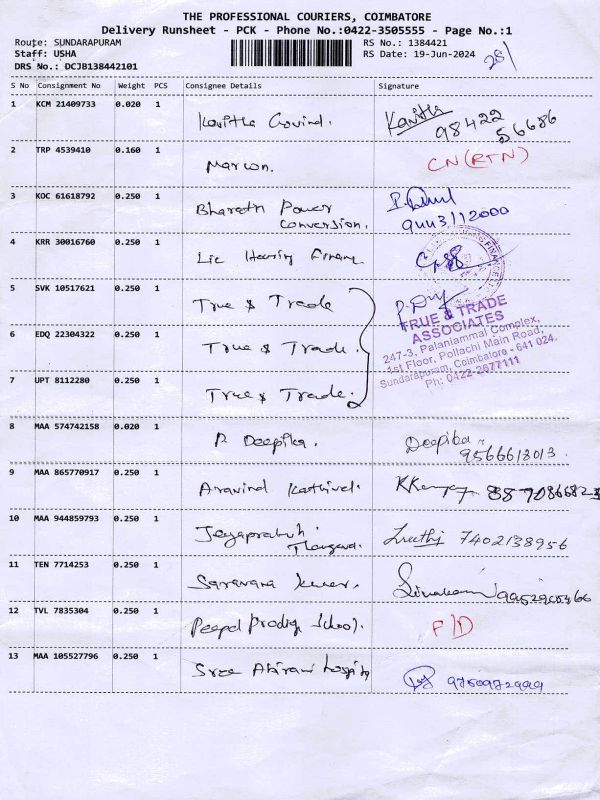 THE PROFESSIONAL COURIERS, COIMBATORE
Delivery Runsheet - PCK - Phone No.:0422-3505555 - Page No.:1
Route: SUNDARAPURAM RS No.: 1384421
Staff: USHA RS Date: 19-Jun-2024
DRS No.: DCJB138442101
28/
S No Consignment No Weight PCS Consignee Details Signature
1 KCM 21409733 0.020 1 Kavitha Govind. Kavitha
98422
56686
2 TRP 4539410 0.160 1 Marcon. CN(RTN)
3 KOC 61618792 0.250 1 Bharath Power
Conversion. 9443112000
4 KRR 30016760 0.250 1 Lic Housing Finance
5 SVK 10517621 0.250 1 True & Trade
TRUE & TRADE
ASSOCIATES
247-3, Palaniammal Complex,
1st Floor, Pollachi Main Road,
Sundarapuram, Coimbatore - 641 024.
Ph: 0422-2677111
6 EDQ 22304322 0.250 1 True & Trade.
7 UPT 8112280 0.250 1 True & Trade.
8 MAA 574742158 0.020 1 R Deepika. Deepika
9566613013.
9 MAA 865770917 0.250 1 Aravind Kathirvel.
10 MAA 944859793 0.250 1 Jeyaprabuh. 7402138956
11 TEN 7714253 0.250 1 Saravana kumar.
12 TVL 7835304 0.250 1 Peepal Prodigy School. P/D
13 MAA 105527796 0.250 1 Sree Abirami hospital 9750972999